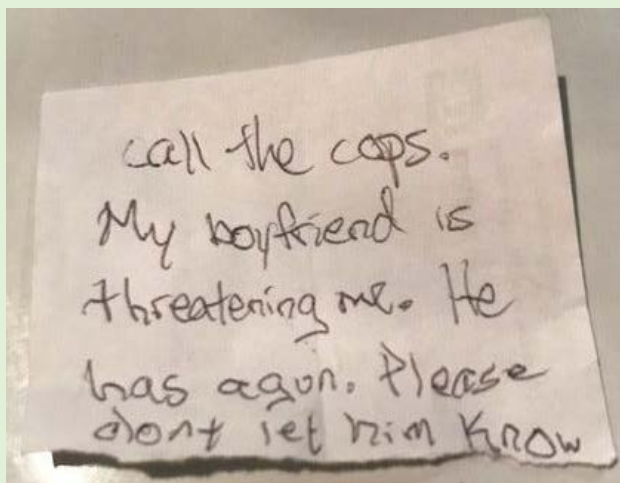 call the cops.
My boyfriend is
threatening me. He
has a gun. Please
dont let him know